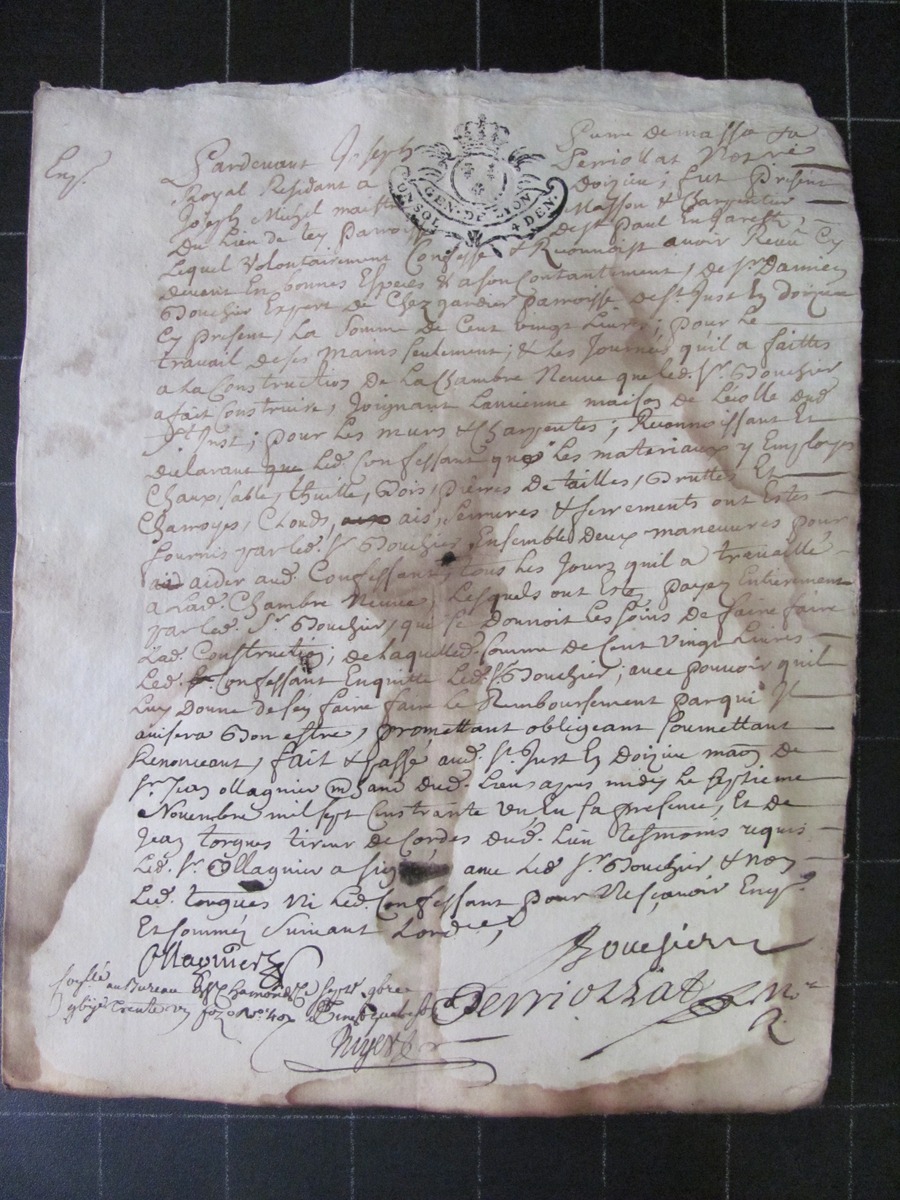 Enq.
Pardevant Joseph Perriollat Not.re
Royal Residant a Doizieu ; fut present
Joseph Michel mait Masson & Charpentier
Du Lieu de ley parroi De St Paul En Jarest ,
Lequel volontairement Confesse & Reconnoist avoir Reçeu Cy
devant En bonnes Espèces & a son Contantement , de Sr. Damien
Bouchier Expert de Chez gardier parroisse de St Just En doizieu
Cy present , La Somme De Cent vingt Livres ; pour le
travail de ses mains Seulement ; & les Journées qu'il a faittes
a la Construction De La Chambre Neuve que led. Sr. Bouchier
a fait Construire , Joignant L'ancienne maison de L'écolle dud.
St. Just ; pour les murs & Charpentes ; Reconnoissant Et
declarant que Led. Confessant que Les materiaux y Employés
Chaux , sable , thuille , Bois , pierres De tailles , Bruttes Et
Charroys , Clouds , ais , serrures & ferrements ont Estés
fournis par led. Sr. Bouchier Ensemble deux maneuvres pour
aider aud. Confessant , tous les Jours qu'il a travaillé
a Lad. Chambre Neuve , Lesquels ont Esté payez Entierement
par led. Sr. Bouchier , qui se Donnoit les soins De faire faire
Lad. Construction ; de Laquelle Somme de Cent vingt Livres
Led. Confessant Enquitte Led. Sr. Bouchier ; avec pouvoir qu'il
Luy Donne de s'en faire faire le Remboursement par qui Il
avisera Bon estre , promettant obligeant Soumettant
Renonceant , fait & passé aud. St. Just En Doizieu maon de
Sr. Jean ollagnier mchand dud. Lieu apres midy le septieme
Novembre mil sept Cens trante un , En sa presence , Et de
Jean torgues tireur de Cordes dud. Lieu tesmoins requis
Led. Sr. Ollagnier a sig avec Led. Sr. Bouchier & non
Led. torgues Ni Led. Confessant pour Ne sçavoir Enq.
Et sommés suivant L'ordce ,
Ollagnier Bouchier
au Bureau de St Chamond Le sept 9bre
trente un
Perriollat Nre
R.
GEN. DE LYON
4 DEN.